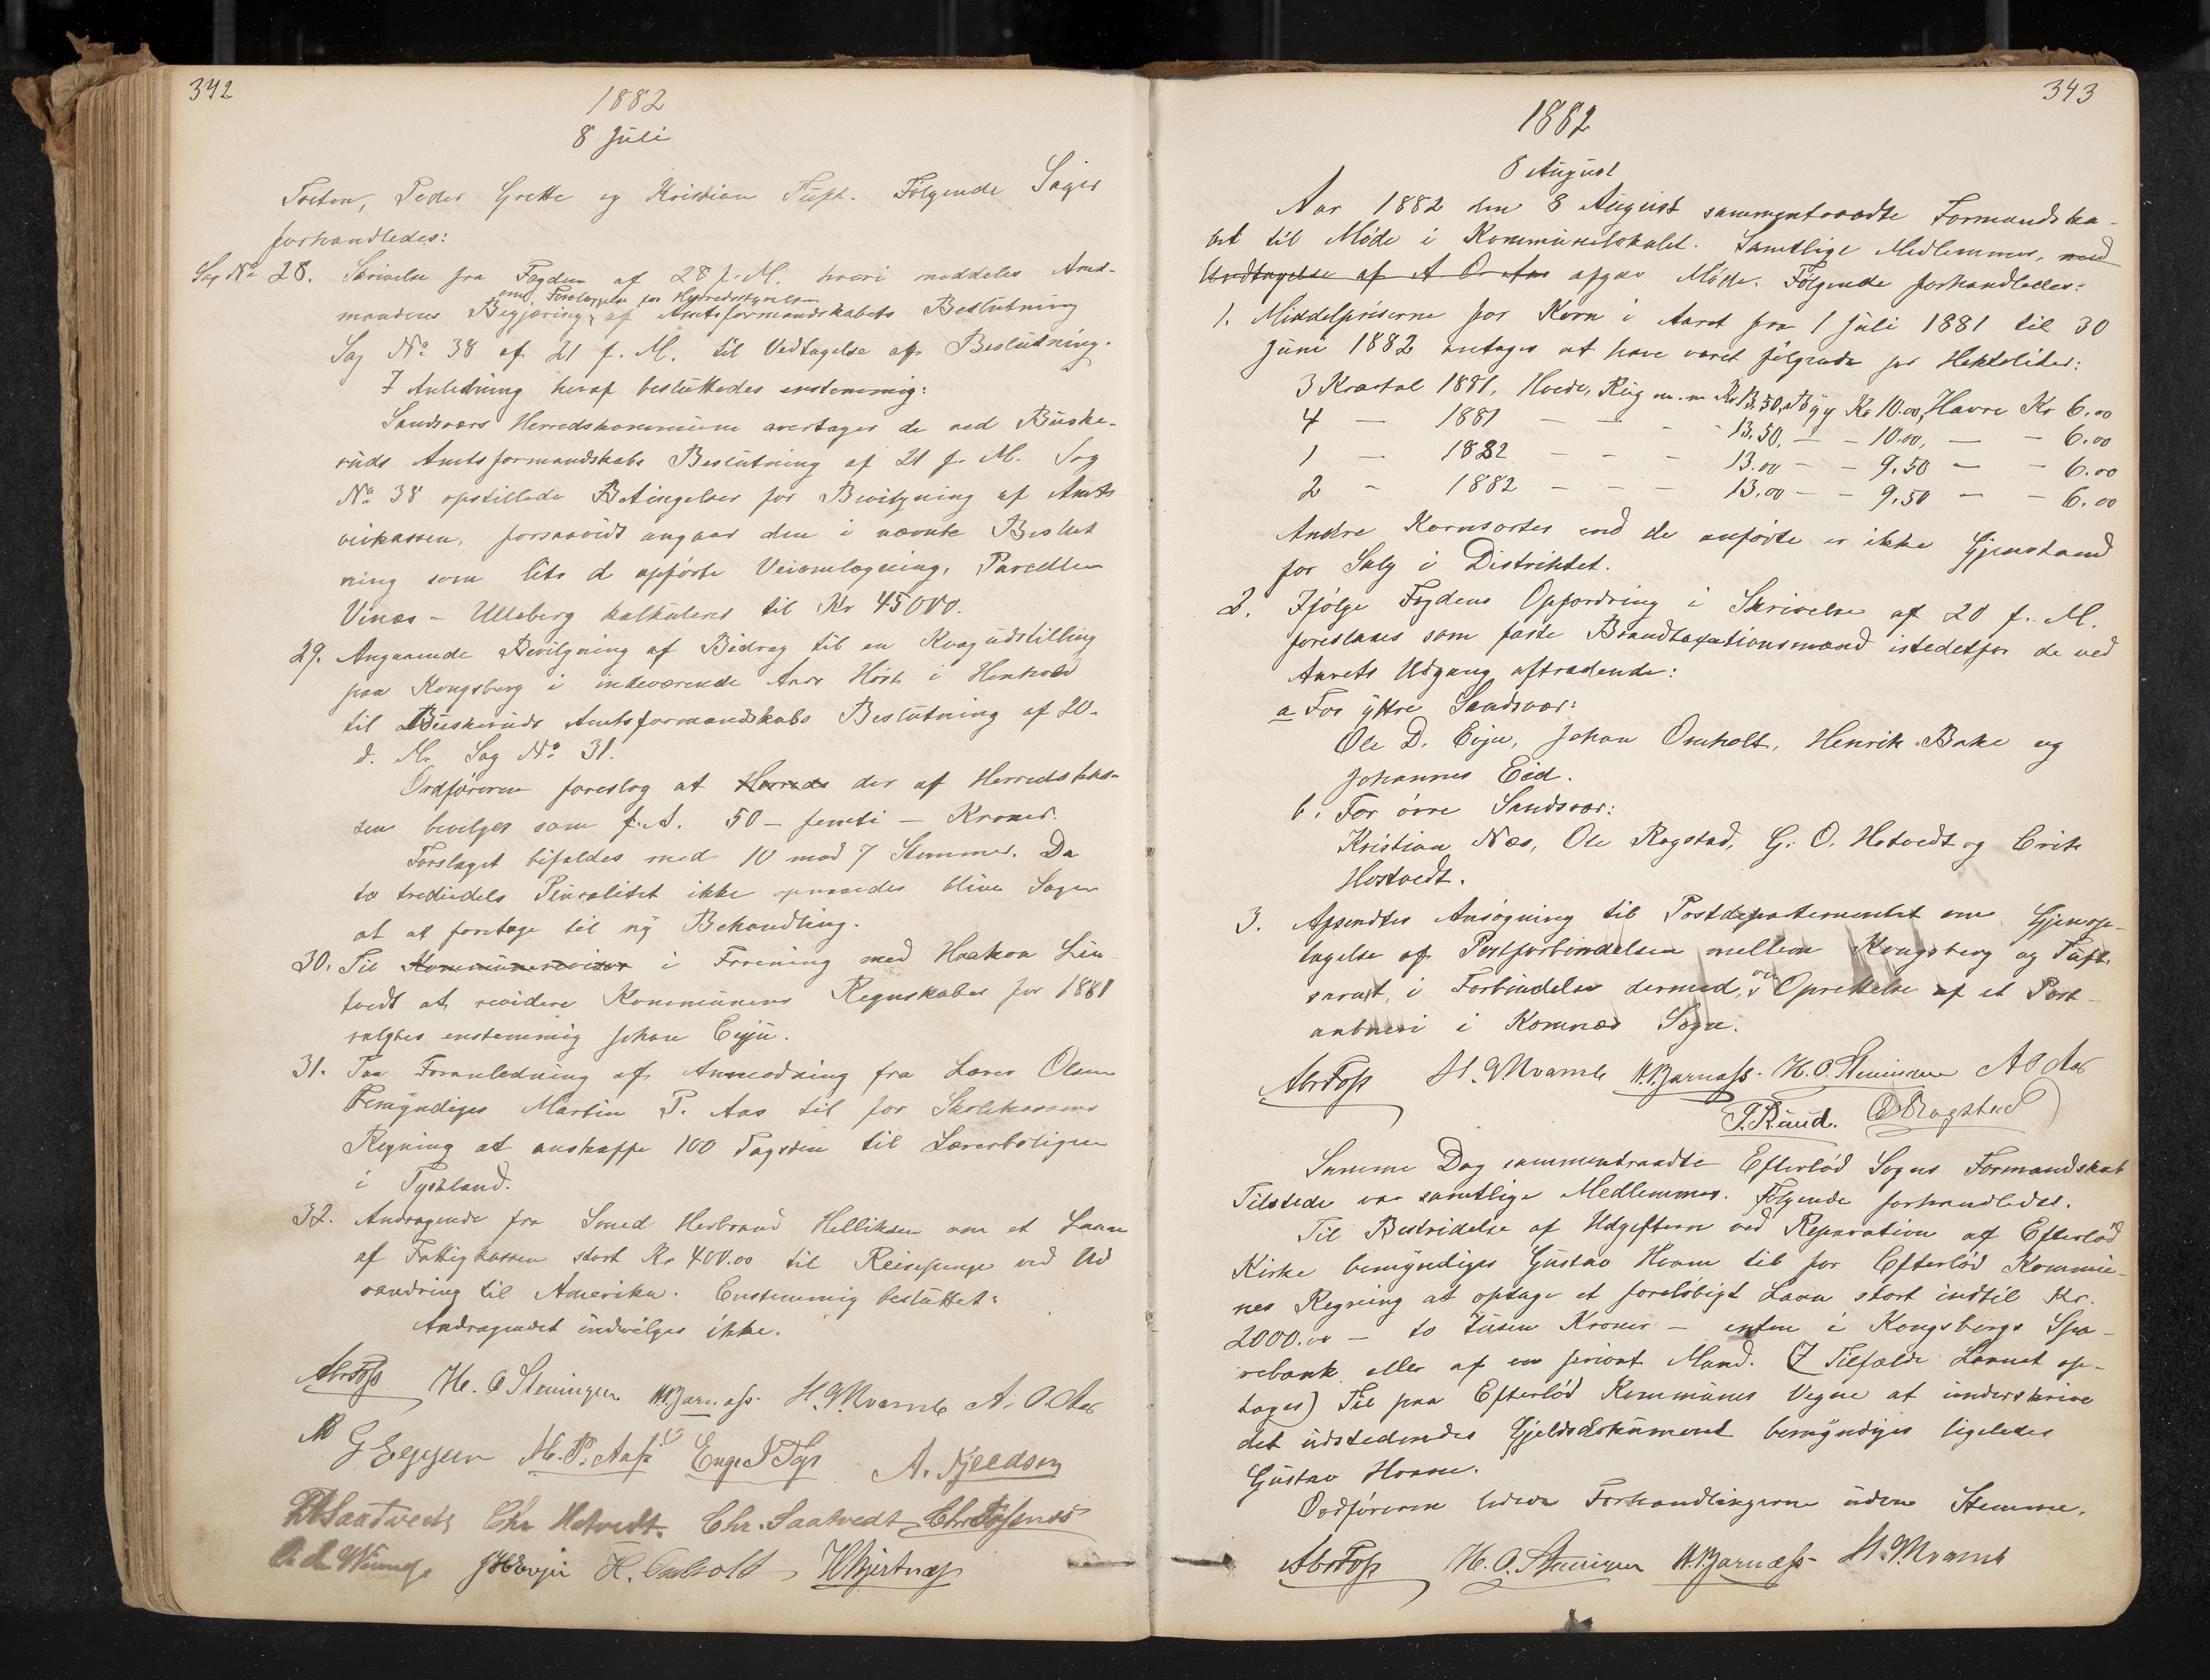 342
1882
8 Juli
Torten, Peder Grette og Kristian Tuft. Følgende Sager
forhandledes:
Sag No 28. Skrivelse fra Fogden af 28 f. M. hvori meddeles Amt-
om Foreleggelse for Herredsstyrelsen
mandens Begjæring af Amtsformandskabets Beslutning
Sag No 38 af 21 f. M. til Vedtagelse af Beslutning.
I Anledning heraf besluttedes enstemmig:
Sandsværs Herredskommune overtager de ved Buske-
ruds Amtsformandskabs Beslutning af 21 f. M. Sag
No 38 opstillede Betingelser for Bevilgning af Amts
veikassen, forsaavidt angaar den i nævnte Beslut
ning som litr d opførte Veiomlægning, Parcellen
Vinæs - Ulleberg kalkuleret til Kr 45000.
29. Angaaende Bevilgning af Bidrag til en Kvægudstilling
paa Kongsberg i indeværende Aars Høst i Henhold
til Buskeruds Amtsformandskabs Beslutning af 20-
d. M. Sag No 31.
Ordføreren foreslog at Herreds der af Herredskas-
sen bevilges som f. A. 50 - femti - Kroner.
Forslaget bifaldes med 10 mod 7 Stemmer. Da
to trediedels Pluralitet ikke opnaaedes bliver Sagen
at at foretage til ny Behandling.
30. Til Kommunerevisor i Forening med Haakon Lin-
tvedt at revidere Kommunens Regnskaber for 1881
valgtes enstemmig Johan Evju.
31. Paa Foranledning af Anmodning fra Lærer Olsen
bemyndiges Martin P. Aas til for Skolekassens
Regning at anskaffe 100 Tagsten til Lærerboligen
i Tyskland.
32. Andragende fra Smed Herbrand Helliksen om et Laan
af Fattigkassen stort Kr 400.00 til Reisepenge ved Ud
vandring til Amerika. Enstemmig besluttet:
Andragendet indvilges ikke.
Abr Foss H. O. Steningen H. Bjarnæss. H. G. Kvamb A. O. Aas
G Eggen M. P. Aass A. Kjeldsen
Saatvedt Chr Hotvedt. Chr. Saatvedt
J H Evju H. Omholt H Hjertnæss
343
1882
8 August
Aar 1882 den 8 August sammentraadte Formandska-
bet til Møde i Kommunelokalet. Samtlige Medlemmer, med
Undtagelse af A. O. Aas afgav Møde. Følgende forhandledes:
1. Middelpriserne for Korn i Aaret fra 1 Juli 1881 til 30
Juni 1882 antages at have været følgende pr Hektoliter:
3 Kvartal 1881, Hvede, Rug m. m Kr 13,50, Byg Kr 10.00, Havre Kr 6.00
4 — 1881 — — - 13.50, — - 10.00, — - 6.00
1 — 1882 - - - 13.00 - - 9.50 — - 6.00
2 - 1882 - - - 13.00 - - 9.50 — - 6.00
Andre Kornsorter end de anførte er ikke Gjenstand
for Salg i Distriktet.
2. Ifølge Fogdens Opfordring i Skrivelse af 20 f. M.
foreslaaes som faste Brandtaxationsmænd istedetfor de ved
Aarets Udgang aftrædende:
a For yttre Sandsvær:
Ole D. Evju, Johan Omholt, Henrik Bake og
Johannes Eid.
b. For øvre Sandsvær:
Kristian Næs, Ole Rogstad, G. O. Hotvedt og Erik
Hostvedt.
3. Afsendtes Ansøgning til Postdepartementet om Gjenop-
tagelse af Postforbindelsen mellem Kongsberg og Tuft.
samt, i Forbindelse dermed, om Oprettelse af et Post-
aabneri i Komnæs Sogn.
Abr Foss H. G. Kvamb H. Bjarnæss. H. O. Steningen A O Aas
T. Ruud. O Rogstad
Samme Dag sammentraadte Efterlød Sogns Formandskab
Tilstede var samtlige Medlemmer. Følgende forhandledes.
Til Bestridelse af Udgifterne ved Reparation af Efterlød
Kirke bemyndiges Gustav Hvam til for Efterlød Kommu-
nes Regning at optage et foreløbigt Laan stort indtil Kr.
2000.00 - to tusen Kroner - enten i Kongsbergs Spa-
rebank eller af en privat Mand. (I Tilfælde Laanet op-
tages) Til paa Efterlød Kommunes Vegne at underskrive
det udstedendes Gjeldsdokument bemyndiges ligeledes
Gustav Hvam.
Ordføreren ledede Forhandlingerne uden Stemme.
Abr Foss H. O. Steningen H. Bjarnæss H. G. Kvamb